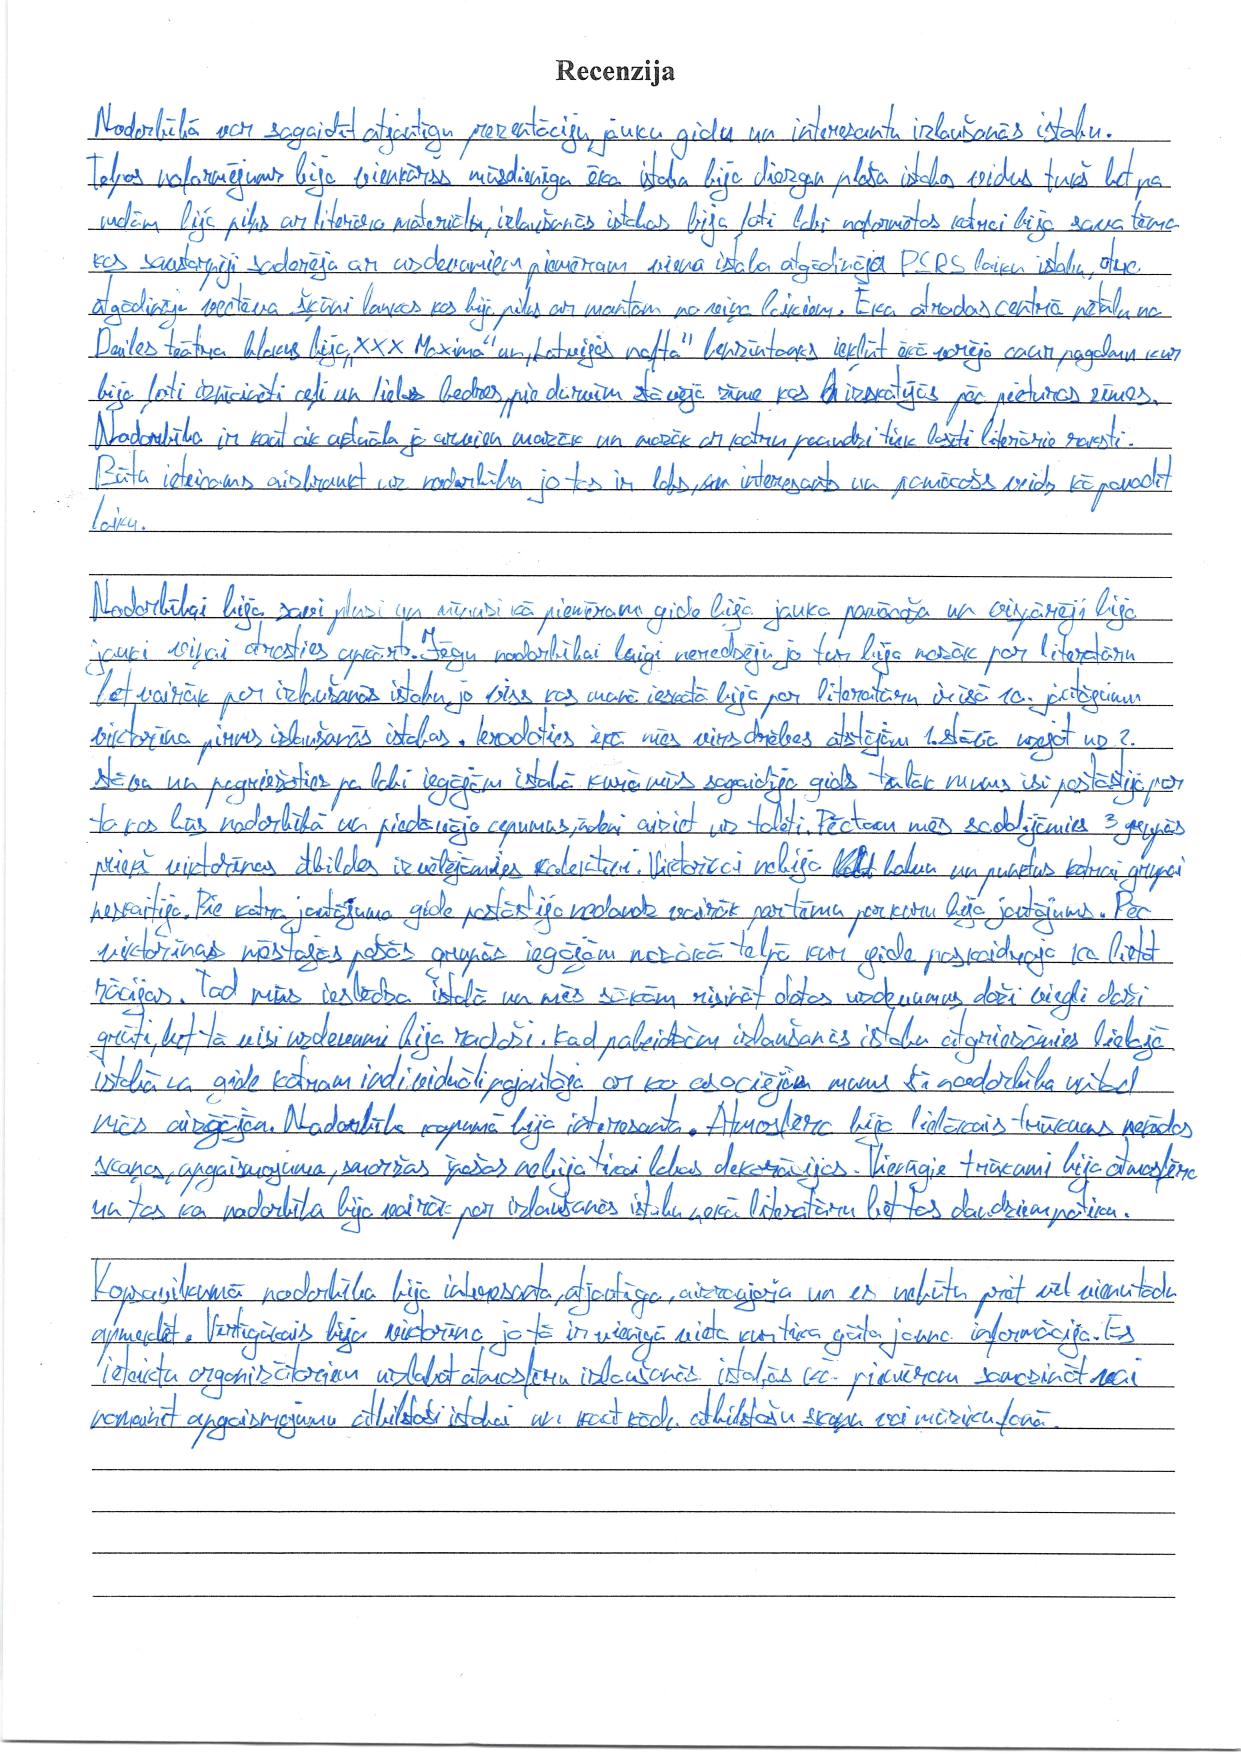 Recenzija
Nodarbībā var sagaidīt atjautīgu prezentāciju, jauku gidu un interesantu izlaušanās istabu.
Telpas noformējums bija vienkāršs mūsdienīga ēka istaba bija diezgan plaša istabas vidus tukš bet pa
malām bija pilns ar literāro materiālu, izlaušanās istabas bija ļoti labi noformētas katrai bija sava tēma
kas savstarpēji saderēja ar uzdevumiem piemēram viena istaba atgādināja PSRS laiku istabu, otra
atgādināja vectēva šķūni laukos kas bija pilns ar mantām no viņa laikiem. Ēka atradas centrā netālu no
Dailes teātra blakus bija „XXX Maxima" un „Latvijas nafta" benzīntanks iekļūt ēkā varēja caur pagalmu kur
bija ļoti iznīcināti ceļi un lielas bedres, pie durvīm stāvēja zīme kas izskatījās pēc pieturas zīmes.
Nodarbība ir kaut cik aktuāla jo arvien mazāk un mazāk ar katru paaudzi tiek lasīti literārie raksti.
Būtu ieteicams aizbraukt uz nodarbību jo tas ir labs, interesants un pamācošs veids kā pavadīt
laiku.
Nodarbībai bija savi plusi un mīnusi kā piemēram gide bija jauka pamācoša un vispārēji bija
jauki viņai atrasties apkārt. Jēgu nodarbībai laigi neredzēju jo tur bija mazāk par literatūru
bet vairāk par izlaušanās istabu, jo viss kas manā ieskatā bija par literatūru ir īsā 10. jautājumu
viktorīna pirms izlaušanās istabas. Ierodoties ēkā mēs virsdrēbes atstājām 1. stāvā uzejot uz 2.
stāvu un pagriežoties pa labi iegājām istabā kurā mūs sagaidīja gids tālāk mums īsi pastāstīja par
to kas būs nodarbībā un piedāvāja cepumus, ūdeni aiziet uz taleti. Pēctam mēs sadalījāmies 3 grupās
priekš viktorīnas atbildes izvēlējāmies Viktorīnai nebija balvu un punktus katrai grupai
neskaitīja. Pie katra jautājuma gide pastāstīja nedaudz vairāk par tēmu par kuru bija jautājums. Pēc
viktorīnas mēs tajās pašās grupās iegājām mazākā telpā kur gide paskaidroja kā lietot
rācijas. Tad mūs ieslēdza istabā un mēs sākām risināt dotos uzdevumus daži viegli daži
grūti, bet tā visi uzdevumi bija radoši. Kad pabeidzām izlaušanās istabu atgriezāmies lielajā
istabā un gide katram individuāli pajautāja ar ko asociējām mums šī nodarbība un tad
mēs aizgājām. Nodarbība kopumā bija interesanta. Atmosfēra bija lielākais trūkums nekādas
skaņas, apgaismojuma, smaržas īpašas nebija tikai labas dekorācijas. Vienīgie trūkumi bija atmosfēra
un tas ka nodarbība bija vairāk par izlaušanās istabu nekā literatūru bet tas daudziem patika.
Kopsavilkumā nodarbība bija interesanta, atjautīga, aizraujoša un es nebūtu pret vēl vienu tādu
apmeklēt. Vērtīgākais bija viktorīna jo tā ir vienīgā vieta kur tika gūta jauna informācija. Es
ieteiktu organizātoriem uzlabot atmosfēru izlaušanās istabās kā piemēram samazināt vai
nomainīt apgaismojumu atbilstoši istabai un kaut kādu atbilstošu skaņu vai mūziku fonā.